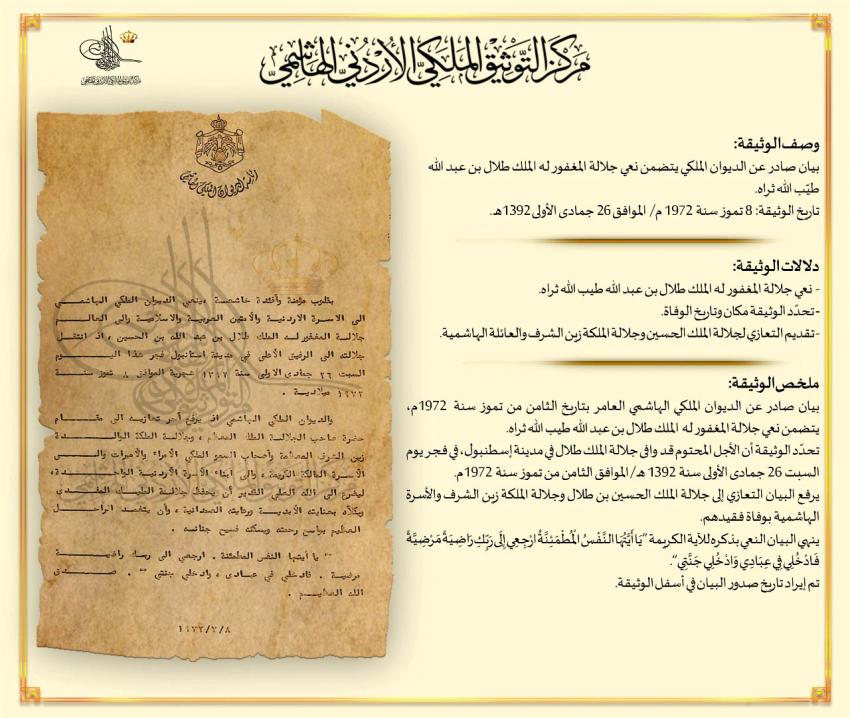 مركز التوثيق الملكي الأردني الهاشمي
وصف الوثيقة:
بيان صادر عن الديوان الملكي يتضمن نعي جلالة المغفور له الملك طلال بن عبد الله
طيّب الله ثراه.
تاريخ الوثيقة: 8 تموز سنة 1972 م/ الموافق 26 جمادى الأولى 1392هـ.
دلالات الوثيقة:
- نعي جلالة المغفور له الملك طلال بن عبد الله طيب الله ثراه.
- تحدّد الوثيقة مكان وتاريخ الوفاة.
- تقديم التعازي لجلالة الملك الحسين وجلالة الملكة زين الشرف والعائلة الهاشمية.
ملخص الوثيقة:
بيان صادر عن الديوان الملكي الهاشمي العامر بتاريخ الثامن من تموز سنة 1972م،
يتضمن نعي جلالة المغفور له الملك طلال بن عبد الله طيب الله ثراه.
تحدّد الوثيقة أن الأجل المحتوم قد وافى جلالة الملك طلال في مدينة إسطنبول، في فجر يوم
السبت 26 جمادى الأولى سنة 1392 هـ/ الموافق الثامن من تموز سنة 1972م.
يرفع البيان التعازي إلى جلالة الملك الحسين بن طلال وجلالة الملكة زين الشرف والأسرة
الهاشمية بوفاة فقيدهم.
ينهي البيان النعي بذكره للآية الكريمة "يَا أَيَّتُهَا النَّفْسُ الْمُطْمَئِنَّةُ ارْجِعِي إِلَى رَبِّكِ رَاضِيَةً مَرْضِيَّةً
فَادْخُلِي فِي عِبَادِي وَادْخُلِي جَنَّتِي".
تم إيراد تاريخ صدور البيان في أسفل الوثيقة.
بقلوب مؤمنة وأفئدة خاشعة ، ينعي الديوان الملكي الهاشمي
الى الاسرة الاردنية والأمتين العربية والاسلامية والى العالم
جلالة المغفور له الملك طلال بن عبد الله بن الحسين ، اذ انتقل
جلالته الى الرفيق الأعلى في مدينة استانبول فجر هذا اليوم
السبت ٢٦ جمادى الاولى سنة ١٣٩٢ هجرية الموافق ٨ تموز سنة
١٩٧٢ ميلادية .
والديوان الملكي الهاشمي اذ يرفع أحر تعازيه الى مقام
حضرة صاحب الجلالة الملك المعظم ، وجلالة الملكة الوالدة
زين الشرف المعظمة وأصحاب السمو الملكي الأمراء والأميرات والى
الأسرة المالكة الكريمة ، والى أبناء الأسرة الأردنية الواحدة ،
ليضرع الى الله العلي القدير أن يحفظ جلالة المليك المفدى
ويكلأه بعنايته الأبدية ورعايته الصمدانية ، وأن يتغمد الراحل
العظيم بواسع رحمته ويسكنه فسيح جنانه .
" يا أيتها النفس المطمئنة . ارجعي الى ربك راضية
مرضية . فادخلي في عبادي ، وادخلي جنتي " . صدق
الله العظيم .
١٩٧٢/٧/٨